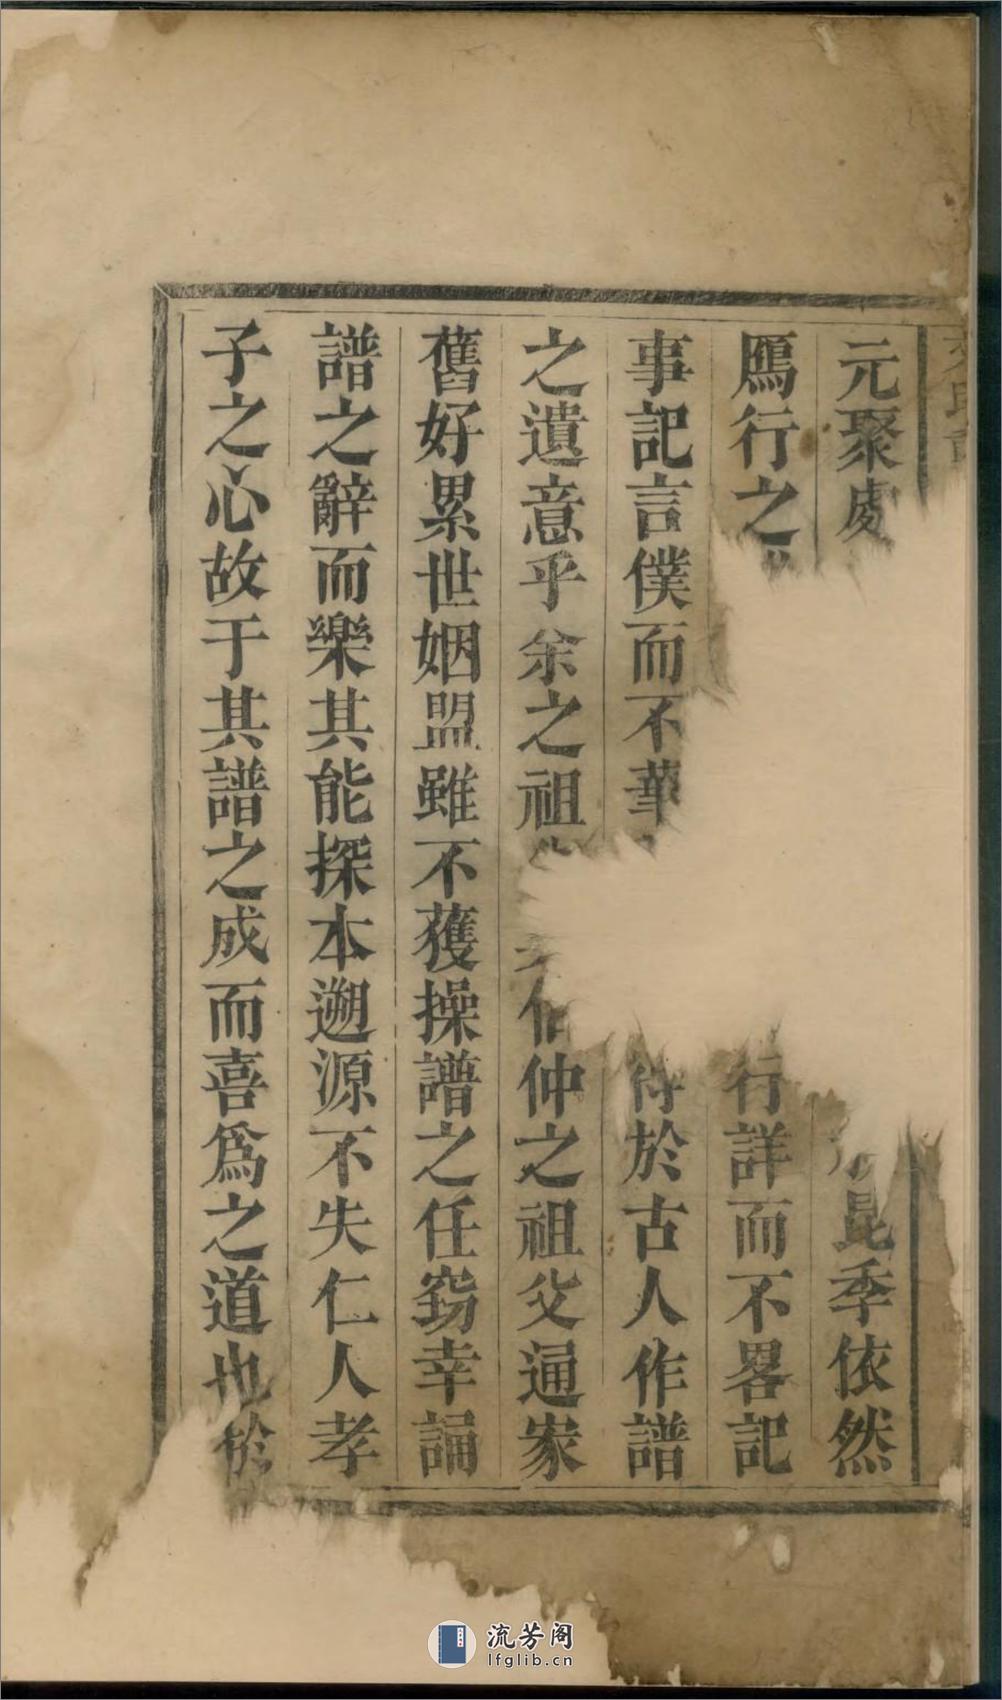 元聚處昆季依然
鴈行之行詳而不畧記
事記言僕而不華得於古人作譜
之遺意乎余之祖伯仲之祖父通家
舊好累世姻盟雖不獲操譜之任竊幸誦
譜之辭而樂其能探本遡源不失仁人孝
子之心故于其譜之成而喜爲之道也於
流芳阁
lfglib.cn